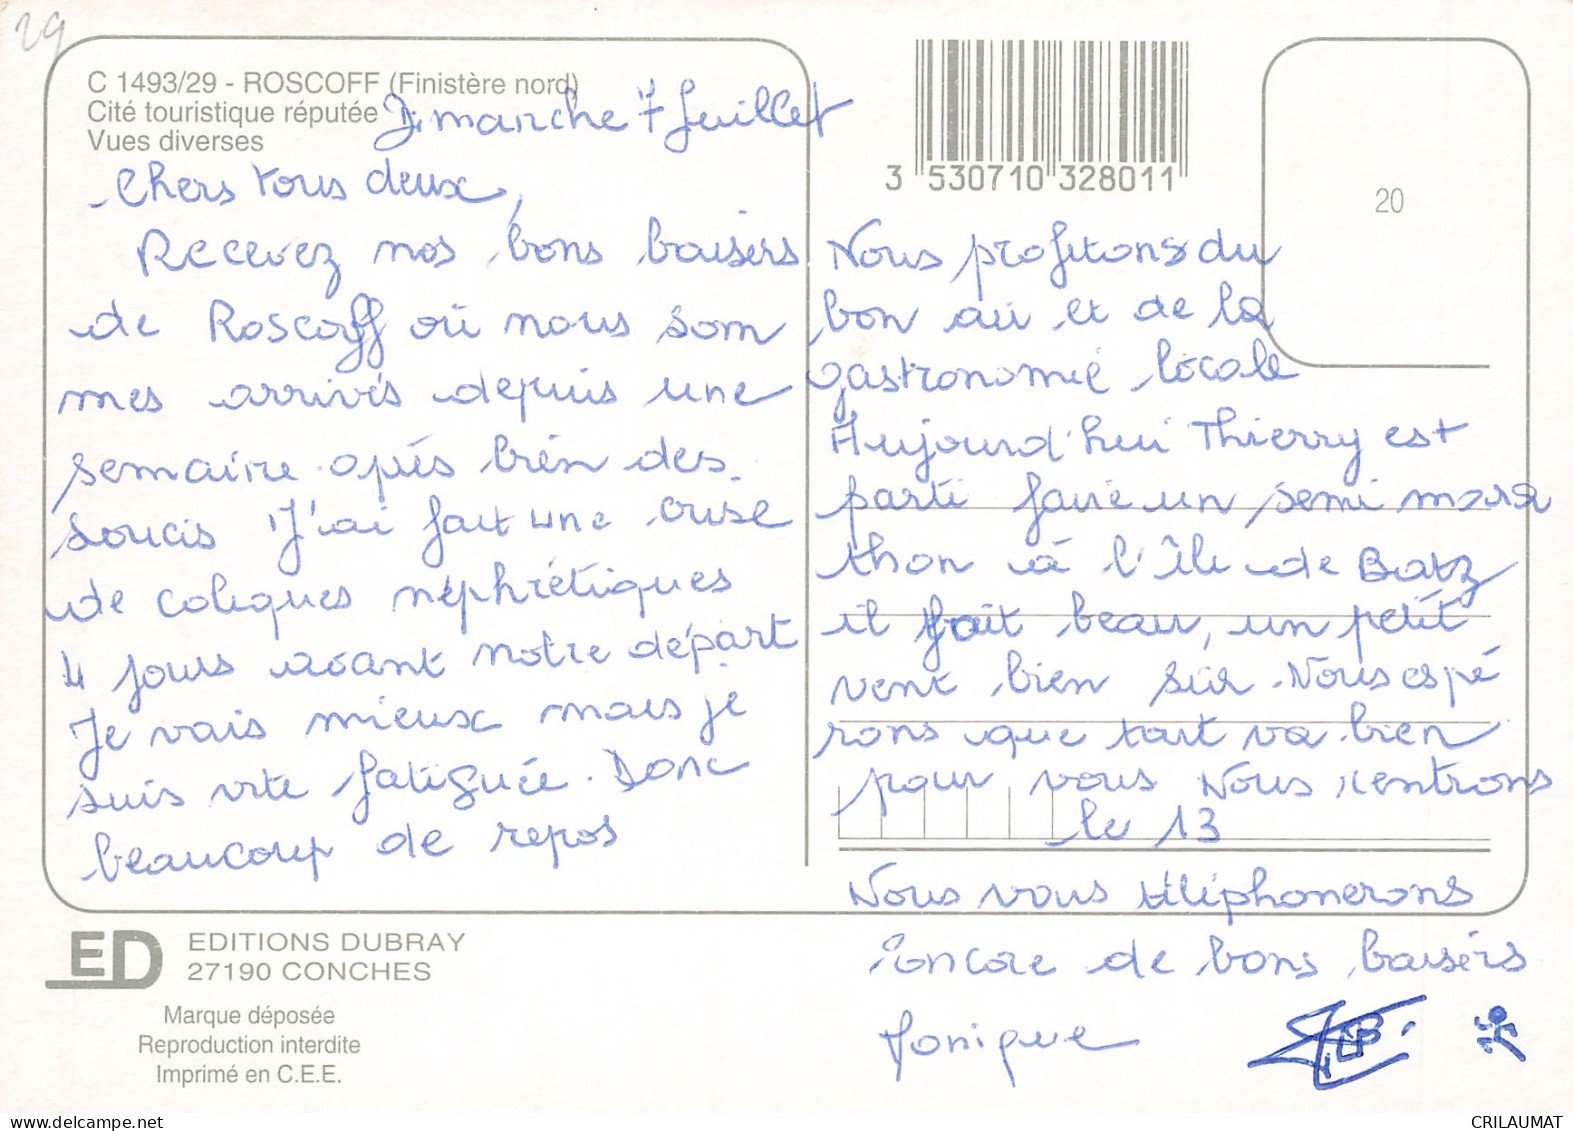 29
C 1493/29 - ROSCOFF (Finistère nord)
Cité touristique réputée
Vues diverses
Dimanche 7 Juillet
Chers tous deux,
Recevez nos bons baisers
de Roscoff où nous som
mes arrivés depuis une
semaine après bien des
soucis J'ai fait une crise
de coliques néphrétiques
4 jours avant notre départ
Je vais mieux mais je
suis vite fatiguée. Donc
beaucoup de repos
3 530710 328011
20
Nous profitons du
bon air et de la
gastronomie locale
Aujourd'hui Thierry est
parti faire un semi mara
thon à l'île de Batz
il fait beau, un petit
vent bien sûr. Nous espé
rons que tout va bien
pour vous Nous rentrons
le 13
Nous vous téléphonerons
Encore de bons baisers
ED
EDITIONS DUBRAY
27190 CONCHES
Marque déposée
Reproduction interdite
Imprimé en C.E.E.
CRILAUMAT